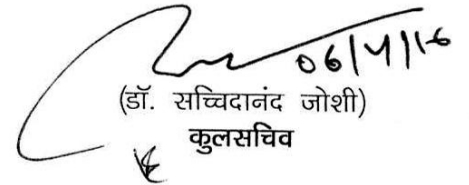 06/4/16
(डॉ. सच्चिदानंद जोशी)
कुलसचिव